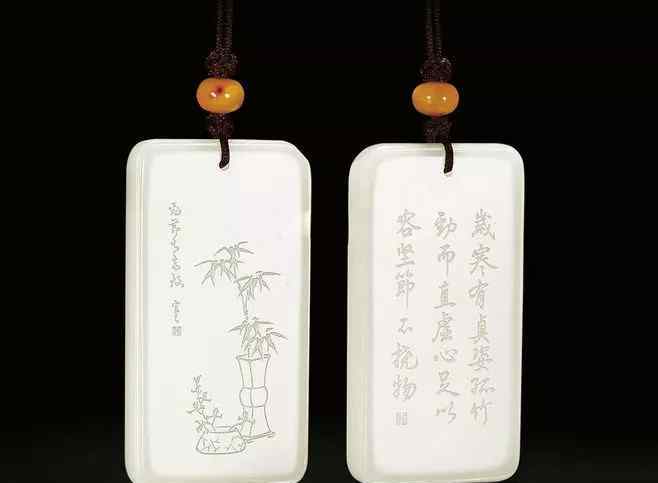 歲寒有貞姿孤竹
勁而直虛心足以
容堅節不撓物